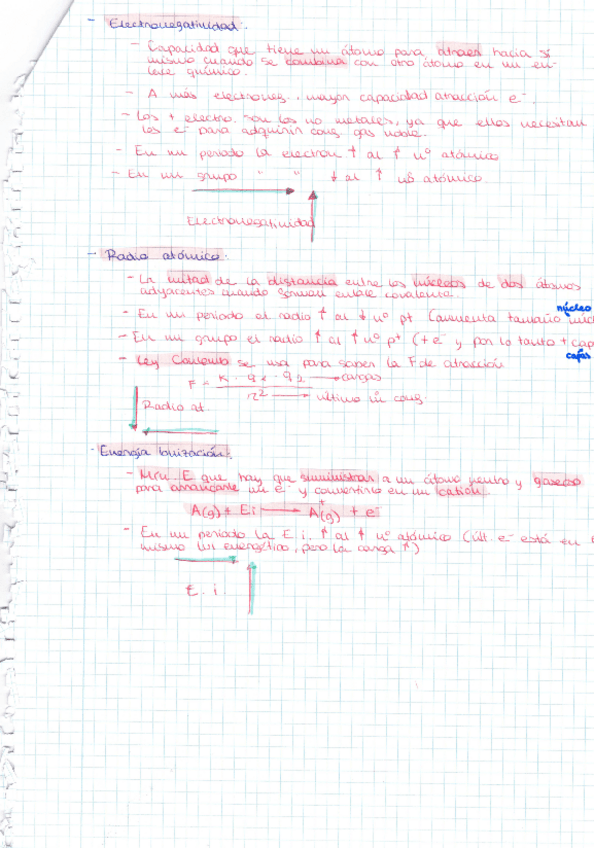 - Electronegatividad:.
- Capacidad que tiene un átomo para atraer hacia sí
mismo cuando se combina con otro átomo en un en-
lace químico.
- A más electroneg., mayor capacidad atracción e⁻.
- Los + electro. son los no metales, ya que ellos necesitan
los e⁻ para adquirir conf. gas noble.
- En un periodo la electron ↑ al ↑ nº atómico
- En un grupo " " ↓ al ↑ nº atómico
Electronegatividad
- Radio atómico:.
- La mitad de la distancia entre los núcleos de dos átomos
adyacentes cuando forman enlace covalente.
núcleo
- En un periodo el radio ↑ al ↓ nº p⁺ (aumenta tamaño
- En un grupo el radio ↑ al ↑ nº p⁺ (+e⁻ y por lo tanto + cap
capas
- Ley Coulomb se usa para saber la F de atracción
F = K · q₁ · q₂ → cargas
r² → último
Radio at.
- Energía Ionización:.
- Mín. E que hay que suministrar a un átomo neutro y gaseoso
para arrancarle un e⁻ y convertirlo en un catión.
A(g) + Ei → A⁺(g) + e⁻
- En un periodo la E i. ↑ al ↑ nº atómico (últ. e⁻ está en
mismo niv energético, pero la carga ↑)
E. i.